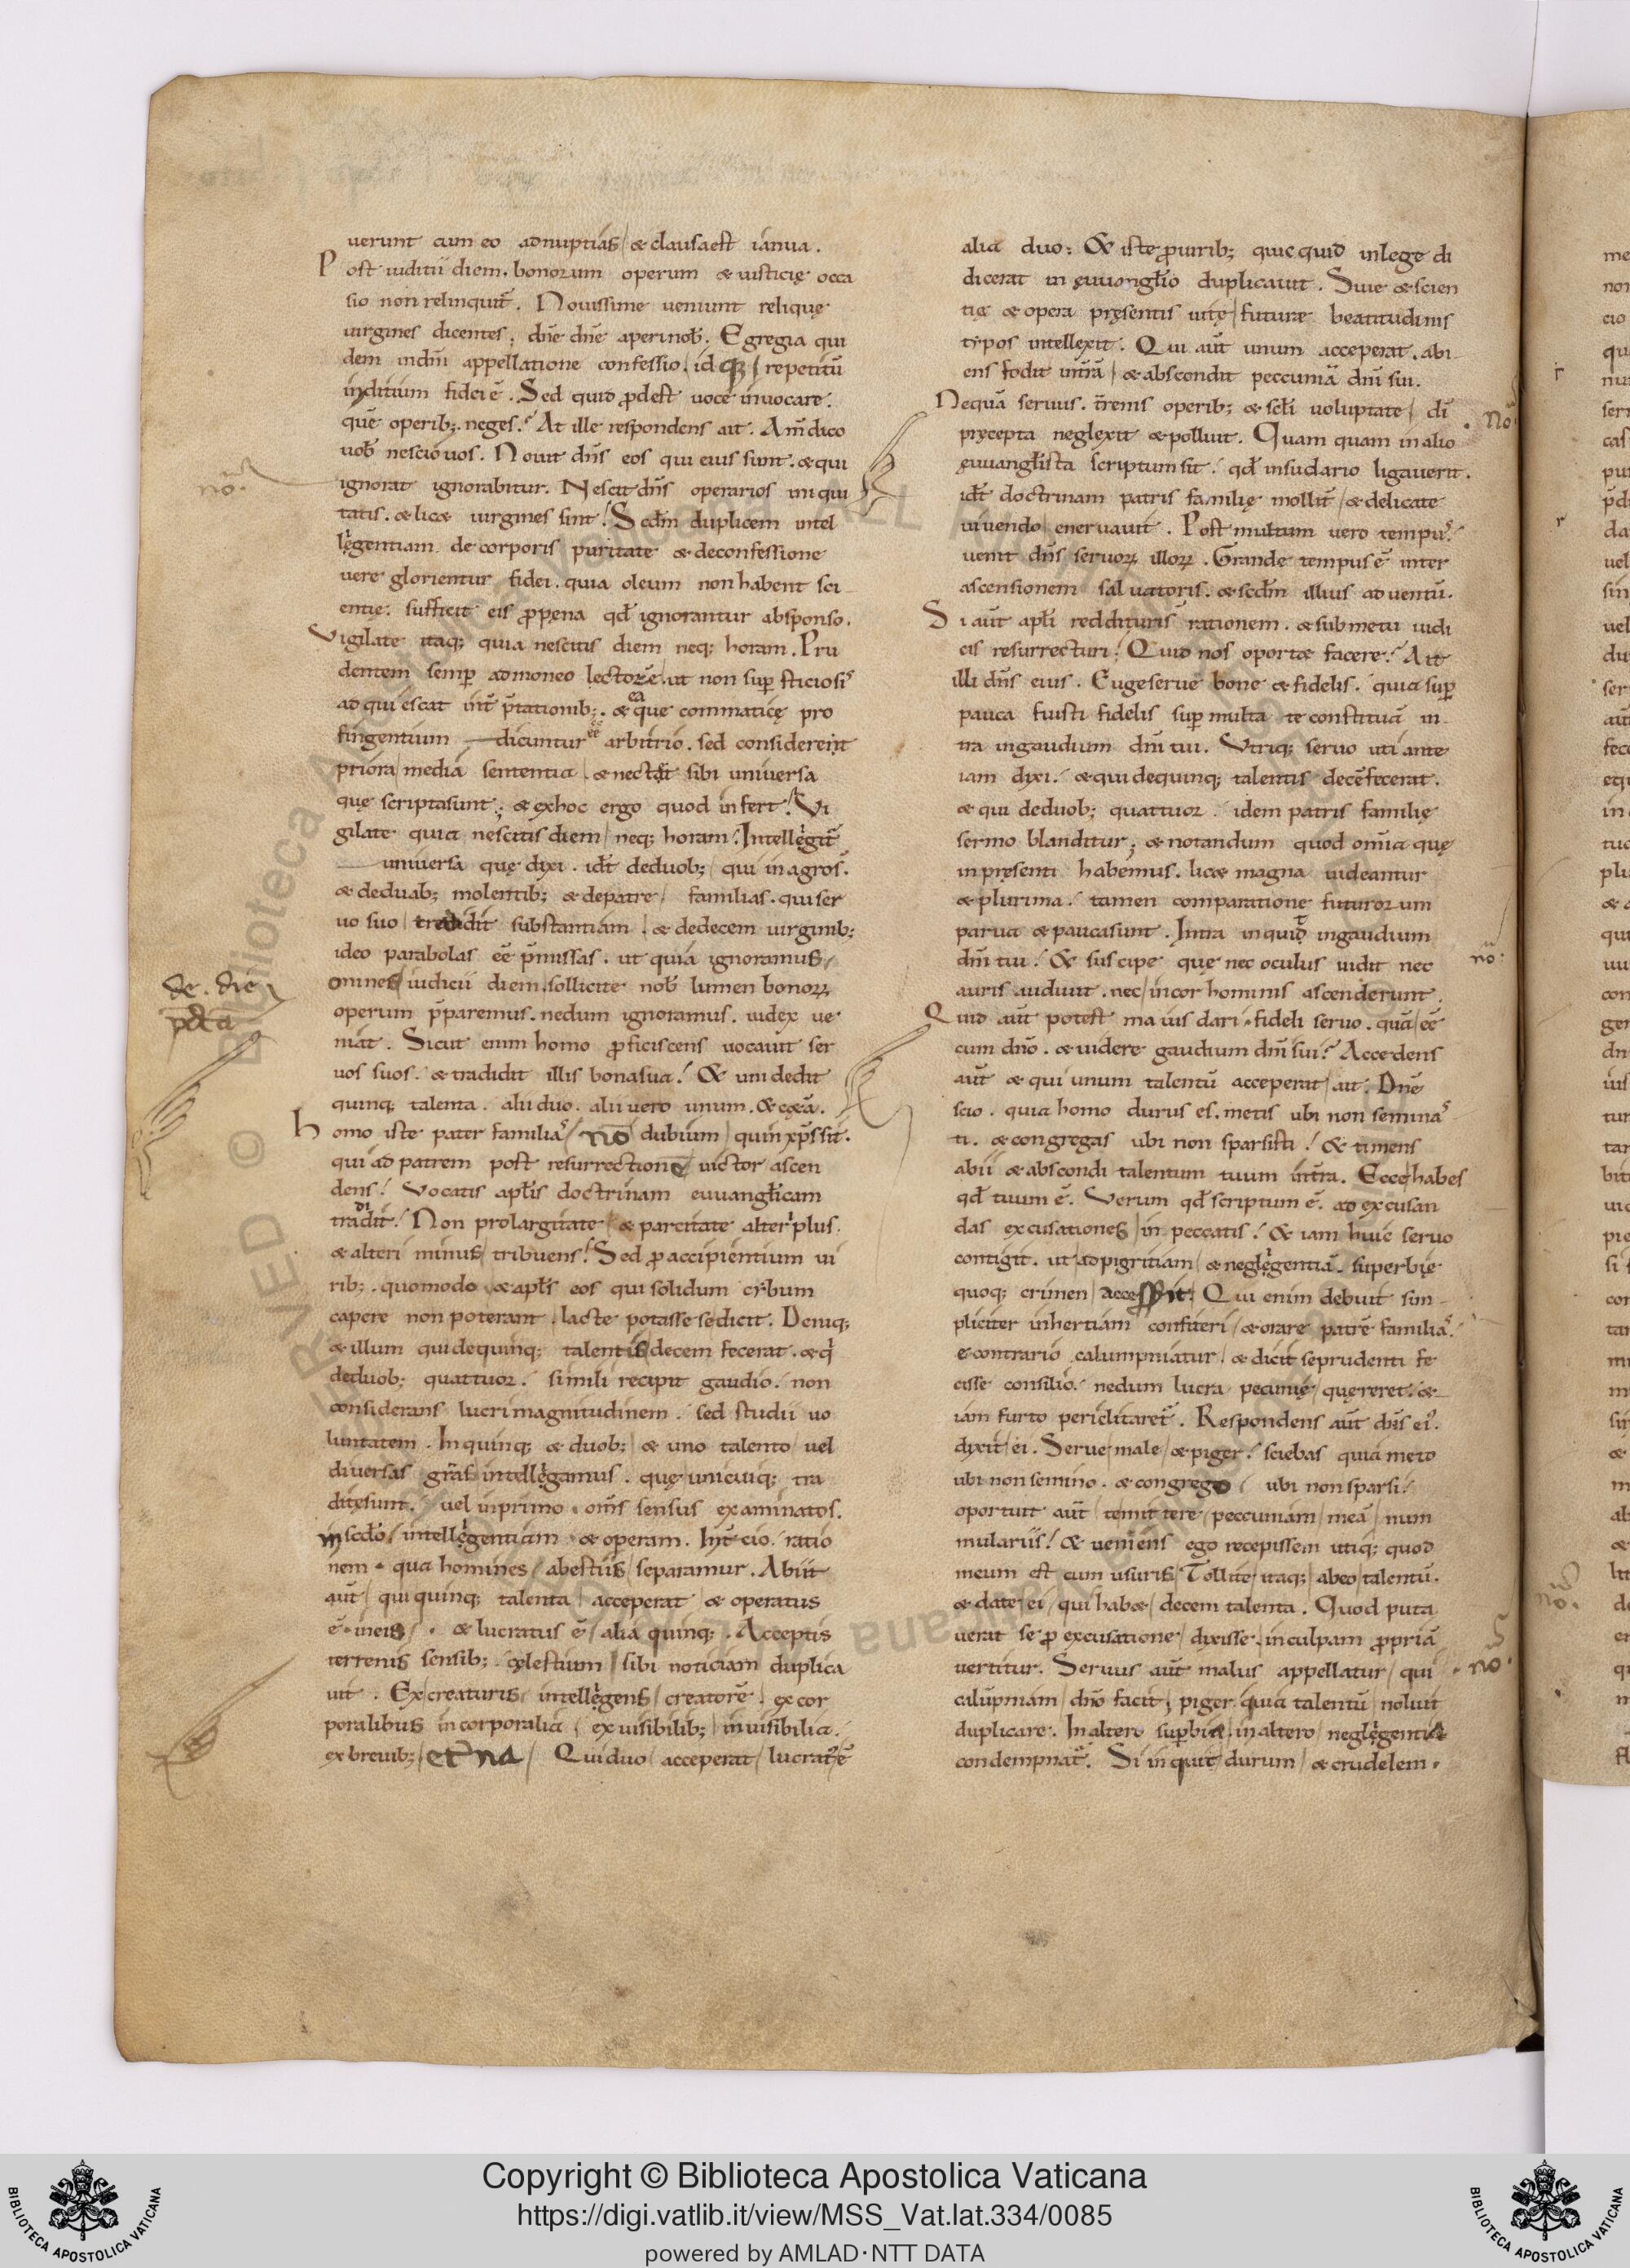 uerunt cum eo adnuptias & clausaest ianua.
Post iuditiũ diem. bonorum operum & iusticię occa
sio non relinquit̃. Nouissime ueniunt reliquę
uirgines dicentes; dñe dñe aperinob̃. Egregia qui
dem indñi appellatione confessio. idq; repetitũ
inditium fidei ẽ. Sed quid ꝓdest uoce inuocare.
quẽ operib; neges? At ille respondens ait. Am̃ dico
uob̃ nescio uos. Nouit dñs eos qui eius sunt. & qui
ignorat ignorabitur. Nescit dñs operarios iniqui
tatis. & lic& uirgines sint! Scđm duplicem intel
lęgentiam de corporis puritate & deconfessione
uere glorientur fidei. quia oleum non habent sci
entię: sufficit eis ꝓpena qđ ignorantur absponso.
Vigilate itaq; quia nescitis diem neq; horam. Pru
dentem semꝑ admoneo lectorẽ. ut non suꝑsticiosis
adquiescat int̃p̃tationib;. & ea que commaticę pro
fingentium dicuntur eẽ arbitrio. sed considereint
priora media sententia & nectat sibi uniuersa
quę scriptasunt; & exhoc ergo quod infert! Vi
gilate quia nescitis diem neq; horam! Intellęgit̃
uniuersa quę dixi. idt̃ deduob; qui in agros.
& deduab; molentib; & depatre familias. qui ser
uo suo tradidit substantiam. & dedecem uirginib;
ideo parabolas eẽ p̃missas. ut quia ignoramus
omnes iudicii diem. sollicite nob̃ lumen bonoꝝ
de. die
operum p̃paremus. nedum ignoramus. iudex ue
niat. Sicut enim homo ꝓficiscens uocauit ser
uos suos. & tradidit illis bonasua! & uni dedit
quinq; talenta. alii duo. alii uero unum. & c&ã.
homo iste pater familias nõ dubium quin xp̃s sit.
qui ad patrem post resurrectione uictor ascen
dens! Vocatis apl̃is doctrinam euuangl̃icam
tradidit! Non prolargitate & parcitate alteri plus.
& alteri minus tribuens! Sed ꝓaccipientium ui
rib;. quomodo & apl̃s eos qui solidum cybum
capere non poterant. lacte potasse sedicit. Deniq;
& illum qui dequinq; talentis decem fecerat. & q̇
deduob; quattuor! simili recipit gaudio. non
considerans lucri magnitudinem. sed studii uo
luntatem. In quinq; & duob; & uno talento uel
diuersas grãs intellęgamus. quę unicuiq; tra
ditęsunt. uel inprimo. om̃s sensus examinatos.
inscđo! intellęgentiam & operam. In t̃cio. ratio
nem. qua homines abestiis separamur. Abiit
aut̃ qui quinq; talenta acceperat & operatus
ẽ ineis. & lucratus ẽ alia quinq;. Acceptis
terrenis sensib; cęlestium sibi noticiam duplica
uit. Ex creaturis intellęgens creatorẽ. ex cor
poralibus incorporalia ex uisibilib; inuisibilia.
ex breuib; et̃na Qui duo acceperat lucrat' ẽ
alia duo: & iste ꝓuirib; quicquid inlege di
dicerat in ęuuangl̃io duplicauit. Siue & scien
tię & opera pręsentis uitę futurae beatitudinis
typos intellexit. Qui aut̃ unum acceperat. abi
ens fodit int̃rã & abscondit peccuniã dñi sui.
Nequã seruus. t̃renis operib; & scl̃i uoluptate di
pręcepta neglexit & polluit. Quam quam in alio
ęuuangl̃ista scriptum sit! qđ insudario ligauerit.
idt̃ doctrinam patris familię mollit̃ & delicate
uiuendo eneruauit. Post multum uero tempus!
uenit dñs seruoꝝ illoꝝ. Grande tempus ẽ inter
ascensionem saluatoris. & scđm illius aduentũ.
Si aut̃ apl̃i reddituri sunt rationem. & submetu iudi
cis resurrecturi! Quid nos oport& facere? Ait
illi dñs eius. Euge serue bone & fidelis. quia suꝑ
pauca fuisti fidelis suꝑ multa te constituã in
tra ingaudium dñi tui. Vtriq; seruo uti ante
iam dixi! & qui dequinq; talentis decẽ fecerat.
& qui deduob; quattuor! idem patris familię
sermo blanditur; & notandum quod om̃ia quę
inpręsenti habemus. lic& magna uideantur
& plurima! tamen comparatione futurorum
parua & paucasunt. Intra inquit ingaudium
dñi tui! & suscipe que nec oculus uidit nec
auris audiuit. nec incor hominis ascenderunt.
Quid aut̃ potest maius dari fideli seruo. quã eẽ
cum dño. & uidere gaudium dñi sui? Accedens
aut̃ & qui unum talentũ acceperat ait. Dñe
scio. quia homo durus es. metis ubi non seminas
ti. & congregas ubi non sparsisti! & timens
abii & abscondi talentum tuum int̃ra. Ecce habes
qđ tuum ẽ. Verum qđ scriptum ẽ. ad excusan
das excusationes in peccatis! & iam huic seruo
contigit. ut adpigritiam & neglęgentiã. superbię
quoq; crimen accesserit; Qui enim debuit sim
pliciter inhertiam confiteri & orare patrẽ familias!
econtrario calumpniatur. & dicit seprudenti fe
cisse consilio. nedum lucra pecunię quęreret. &
iam furto periclitaret̃. Respondens aut̃ dñs ei'.
dixit ei. Serue male & piger! sciebas quia meto
ubi non semino. & congrego ubi non sparsi!
oportuit aut̃ te mittere peccuniam meã num
mulariis! & ueniens ego recepissem utiq; quod
meum est cum usuris Tollite itaq; abeo talentũ.
& date ei qui hab& decem talenta. Quod puta
uerat se ꝓ excusatione dixisse. inculpam ꝓpriã
uertitur. Seruus aut̃ malus appellatur qui
calũpniam dño facit; piger quia talentũ noluit
duplicare. In altero suꝑbia. inaltero neglęgentia
condempnat̃. Si inquit durum & crudelem.
Copyright © Biblioteca Apostolica Vaticana
https://digi.vatlib.it/view/MSS_Vat.lat.334/0085
powered by AMLAD·NTT DATA
BIBLIOTECA APOSTOLICA VATICANA
BIBLIOTECA APOSTOLICA VATICANA